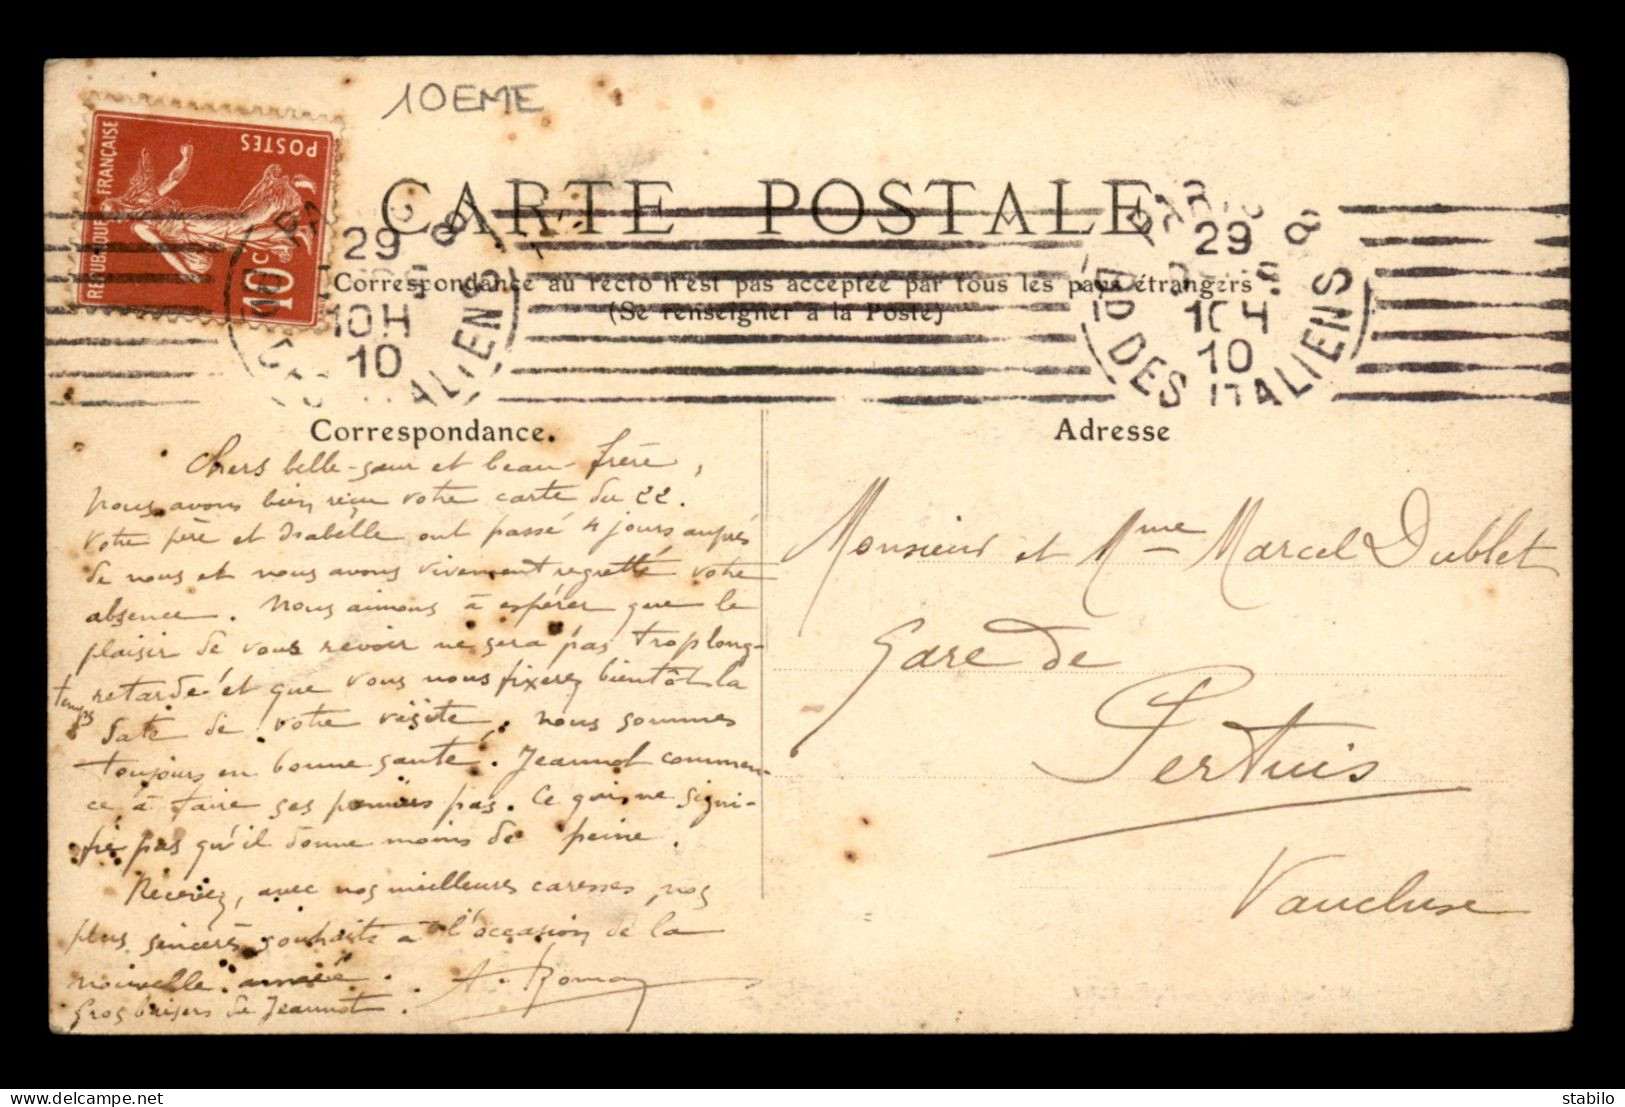 10EME
RÉPUBLIQUE FRANÇAISE
POSTES
10 C
CARTE POSTALE
29
10H
10
29
10H
10
PARIS 8
BD DES ITALIENS
Correspondance au recto n'est pas acceptée par tous les pays étrangers
(Se renseigner à la Poste)
Correspondance.
Adresse
Chers belle-sœur et beau-frère,
nous avons bien reçu votre carte du 22.
Votre père et Isabelle ont passé 4 jours auprès
de nous et nous avons vivement regretté votre
absence. Nous aimons à espérer que le
plaisir de vous revoir ne sera pas trop long-
temps retardé et que vous nous fixerez bientôt la
date de votre visite, nous sommes
toujours en bonne santé. Jeannot commen-
ce à faire ses premiers pas. Ce qui ne signi-
fie pas qu'il donne moins de peine.
Recevez, avec nos meilleures caresses, nos
plus sincères souhaits à l'occasion de la
nouvelle année.
Gros baisers de Jeannot.
Monsieur et Mme Marcel Dublet
Gare de
Pertuis
Vaucluse
delcampe.net
stabilo